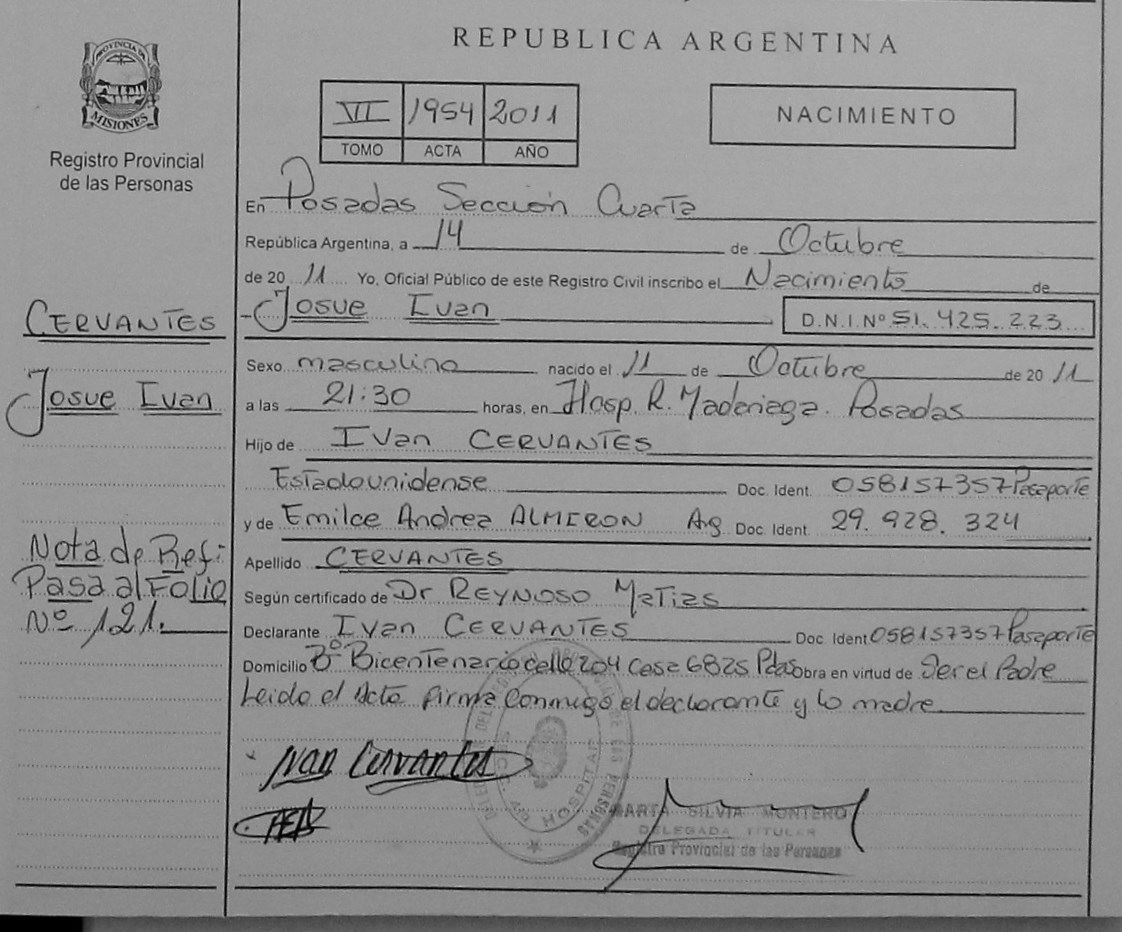 REPUBLICA ARGENTINA
PROVINCIA DE
MISIONES
Registro Provincial
de las Personas
VI 1954 2011
TOMO ACTA AÑO
NACIMIENTO
En Posadas Sección Cuarta
República Argentina, a 14 de Octubre
de 20 11 Yo, Oficial Público de este Registro Civil inscribo el Nacimiento de
Josue Ivan
D.N.I.Nº 51.425.223
CERVANTES
Josue Ivan
Sexo masculino nacido el 11 de Octubre de 20 11
a las 21:30 horas, en Hosp. R. Madariaga. Posadas
Hijo de Ivan CERVANTES
Estadounidense Doc. Ident. 058157357 Pasaporte
y de Emilce Andrea ALMIRON Ag Doc Ident 29.928.324
Nota de Ref:
Pasa al Folio
Nº 121.
Apellido CERVANTES
Según certificado de Dr REYNOSO Matias
Declarante Ivan CERVANTES Doc Ident 058157357 Pasaporte
Domicilio Bº Bicentenario calle 204 casa 6825 Pdas obra en virtud de Ser el Padre
Leido el Acta firma conmigo el declarante y la madre
Ivan Cervantes
HOSPITAL
DE LAS PERSONAS
MARTA SILVIA MONTERO
DELEGADA TITULAR
Registro Provincial de las Personas